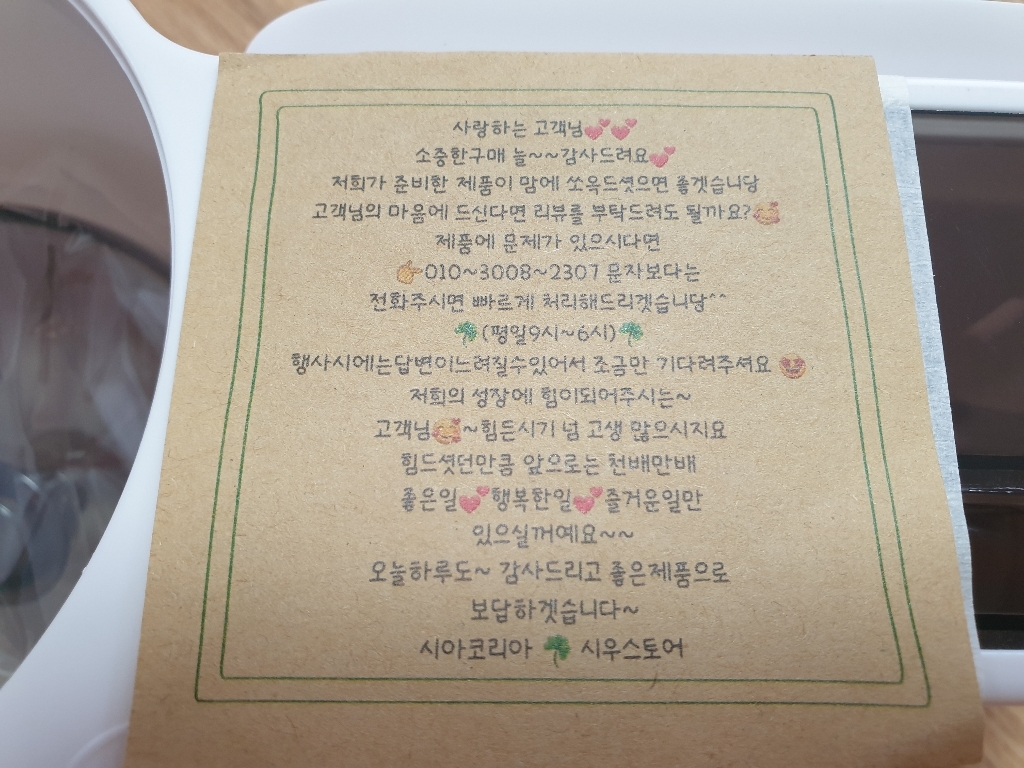 사랑하는 고객님💕💕
소중한구매 늘~~감사드려요💕
저희가 준비한 제품이 맘에 쏘옥드셧으면 좋겟습니당
고객님의 마음에 드신다면 리뷰를 부탁드려도 될까요?🥰
제품에 문제가 있으시다면
👉010~3008~2307 문자보다는
전화주시면 빠르게 처리해드리겟습니당^^
🌴(평일9시~6시)🌴
행사시에는답변이느려질수있어서 조금만 기다려주셔요 😍
저희의 성장에 힘이되어주시는~
고객님🥰~힘든시기 넘 고생 많으시지요
힘드셧던만큼 앞으로는 천배만배
좋은일💕행복한일💕즐거운일만
있으실꺼예요~~
오늘하루도~ 감사드리고 좋은제품으로
보답하겟습니다~
시아코리아 🌴 시우스토어